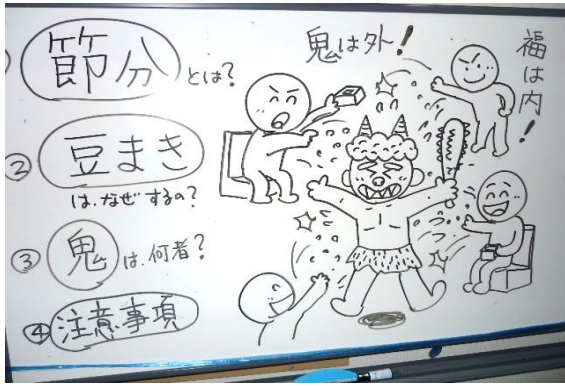 節分とは?
② 豆まき
は、なぜするの?
③ 鬼は、何者?
④ 注意事項
鬼は外!
福は内!